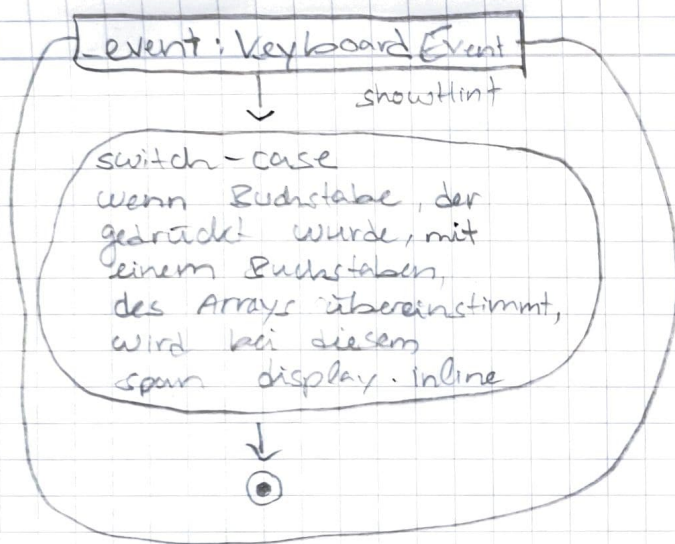 _event: KeyboardEvent
showHint
switch-case
wenn Buchstabe, der
gedrückt wurde, mit
einem Buchstaben,
des Arrays übereinstimmt,
wird bei diesem
span display.inline